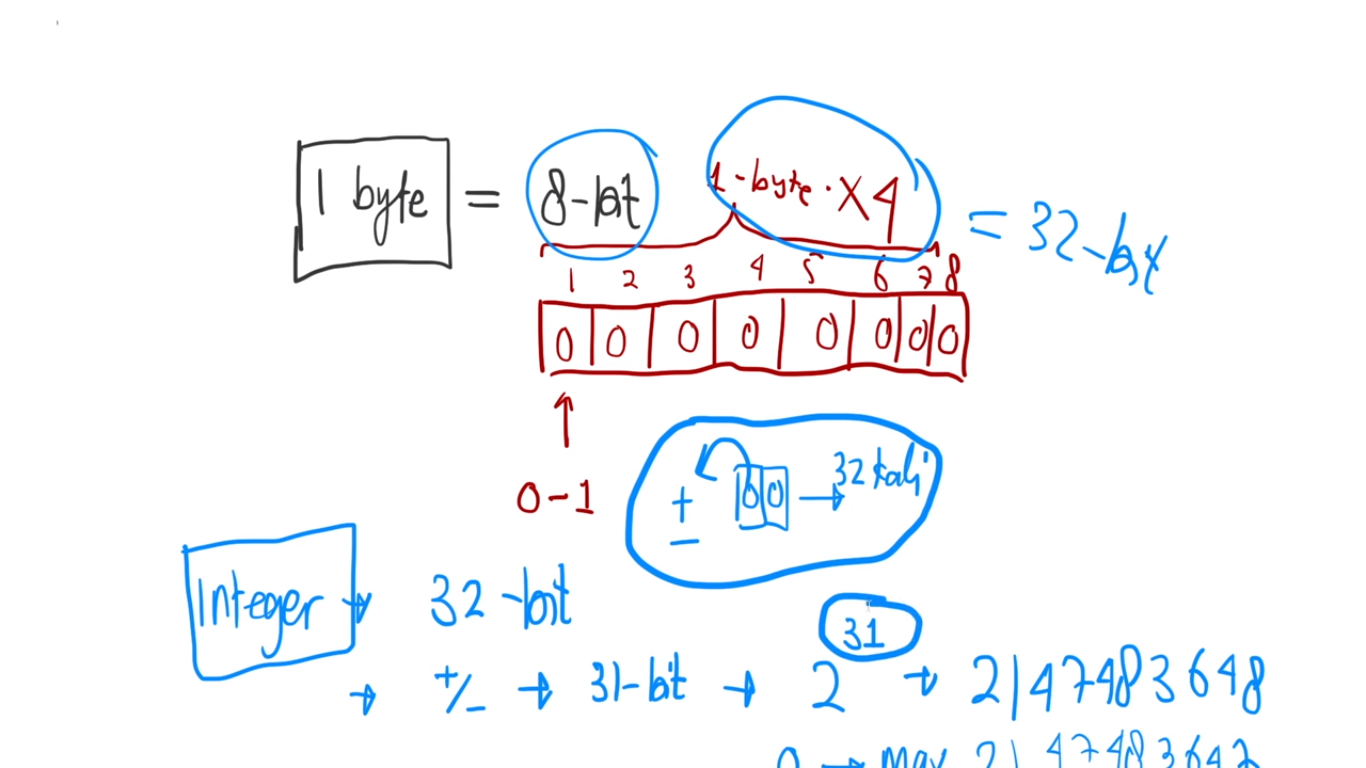 1 byte = 8-bit 1-byte · X 4 = 32-bit
1 2 3 4 5 6 7 8
0 0 0 0 0 0 0 0
0-1
+
-
00 → 32 kali
Integer → 32-bit
→ +/- → 31-bit → 2^31 → 2147483648
0 → max 2147483647